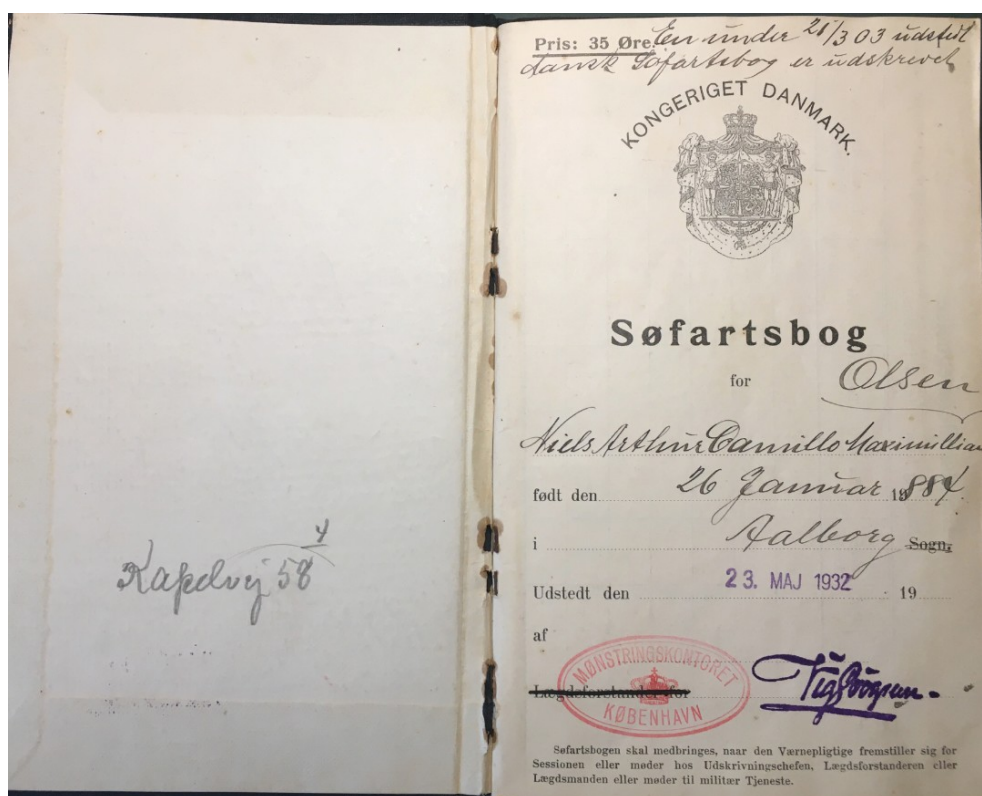 Kapelvej 58 4
Pris: 35 Øre. En under 21/3 03 udstedt
dansk Søfartsbog er udskrevet
KONGERIGET DANMARK.
Søfartsbog
for
Olsen
Niels Arthur Camillo Maximillian
født den 26 Januar 1884
i Aalborg Sogn,
Udstedt den 23. MAJ 1932 19
af
MØNSTRINGSKONTORET
KØBENHAVN
Lægdsforstander for
Søfartsbogen skal medbringes, naar den Værnepligtige fremstiller sig for
Sessionen eller møder hos Udskrivningschefen, Lægdsforstanderen eller
Lægdsmanden eller møder til militær Tjeneste.